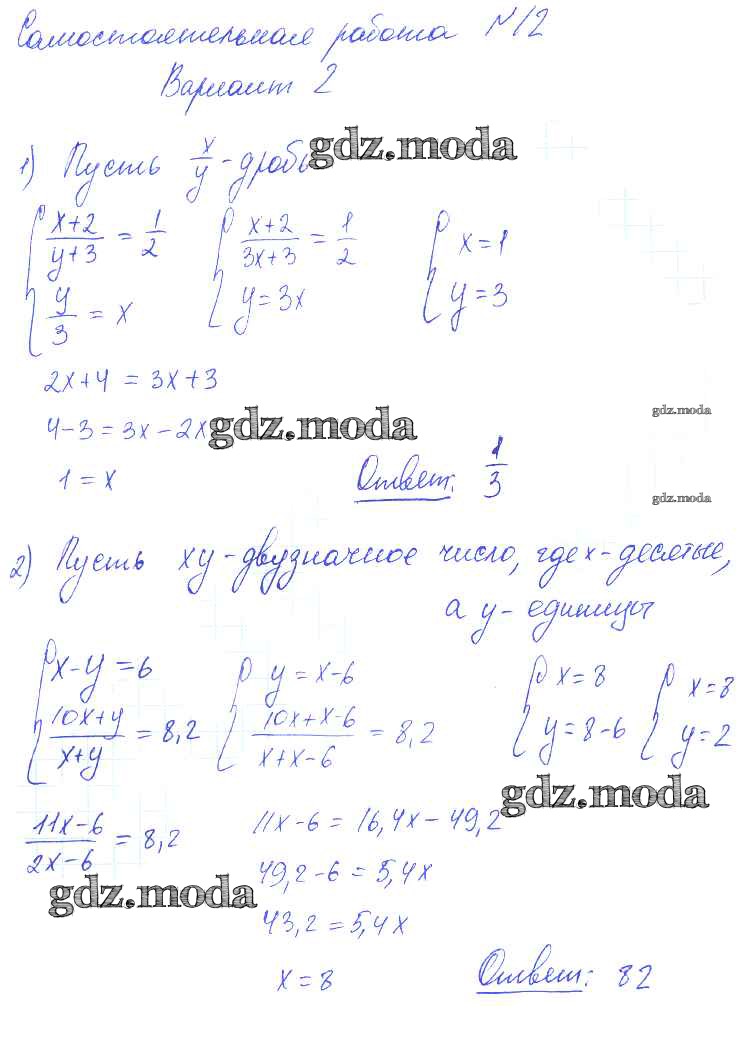 Самостоятельная работа №12
Вариант 2
1) Пусть x/y - дробь gdz.moda
{ (x+2)/(y+3) = 1/2 { (x+2)/(3x+3) = 1/2 { x=1
y/3 = x y=3x y=3
2x+4 = 3x+3
4-3=3x-2x gdz.moda gdz.moda
1=x Ответ: 1/3 gdz.moda
2) Пусть xy-двузначное число, где x-десятые,
а y-единицы
{ x-y=6 { y=x-6 { x=8 { x=8
(10x+y)/(x+y) = 8,2 (10x+x-6)/(x+x-6) = 8,2 y=8-6 y=2
gdz.moda
(11x-6)/(2x-6) = 8,2 11x-6=16,4x-49,2
gdz.moda 49,2-6=5,4x
43,2=5,4x
x=8 Ответ: 82